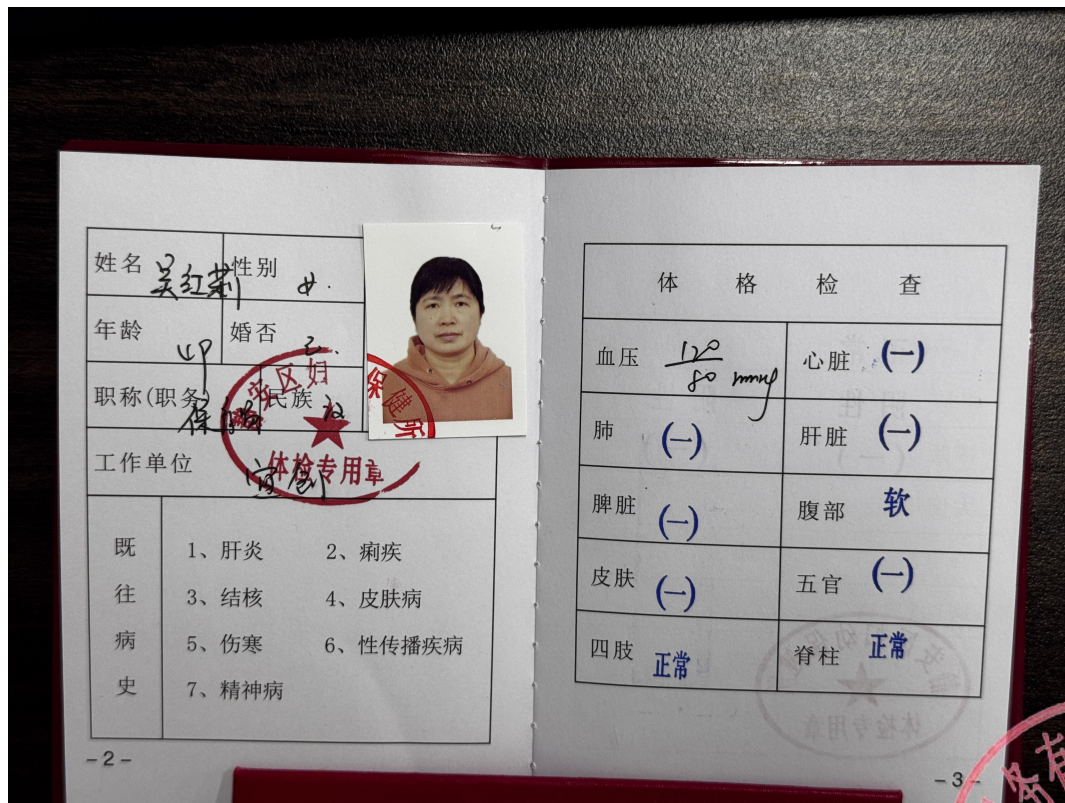 姓名 吴红莉 性别 女.
年龄 婚否 已.
职称(职务) 保 民族 汉
工作单位
区妇 保健所
体检专用章
既往病史
1、肝炎 2、痢疾
3、结核 4、皮肤病
5、伤寒 6、性传播疾病
7、精神病
-2-
体格检查
血压 120/80 mmHg 心脏 (一)
肺 (一) 肝脏 (一)
脾脏 (一) 腹部 软
皮肤 (一) 五官 (一)
四肢 正常 脊柱 正常
体检专用章
-3-
务有